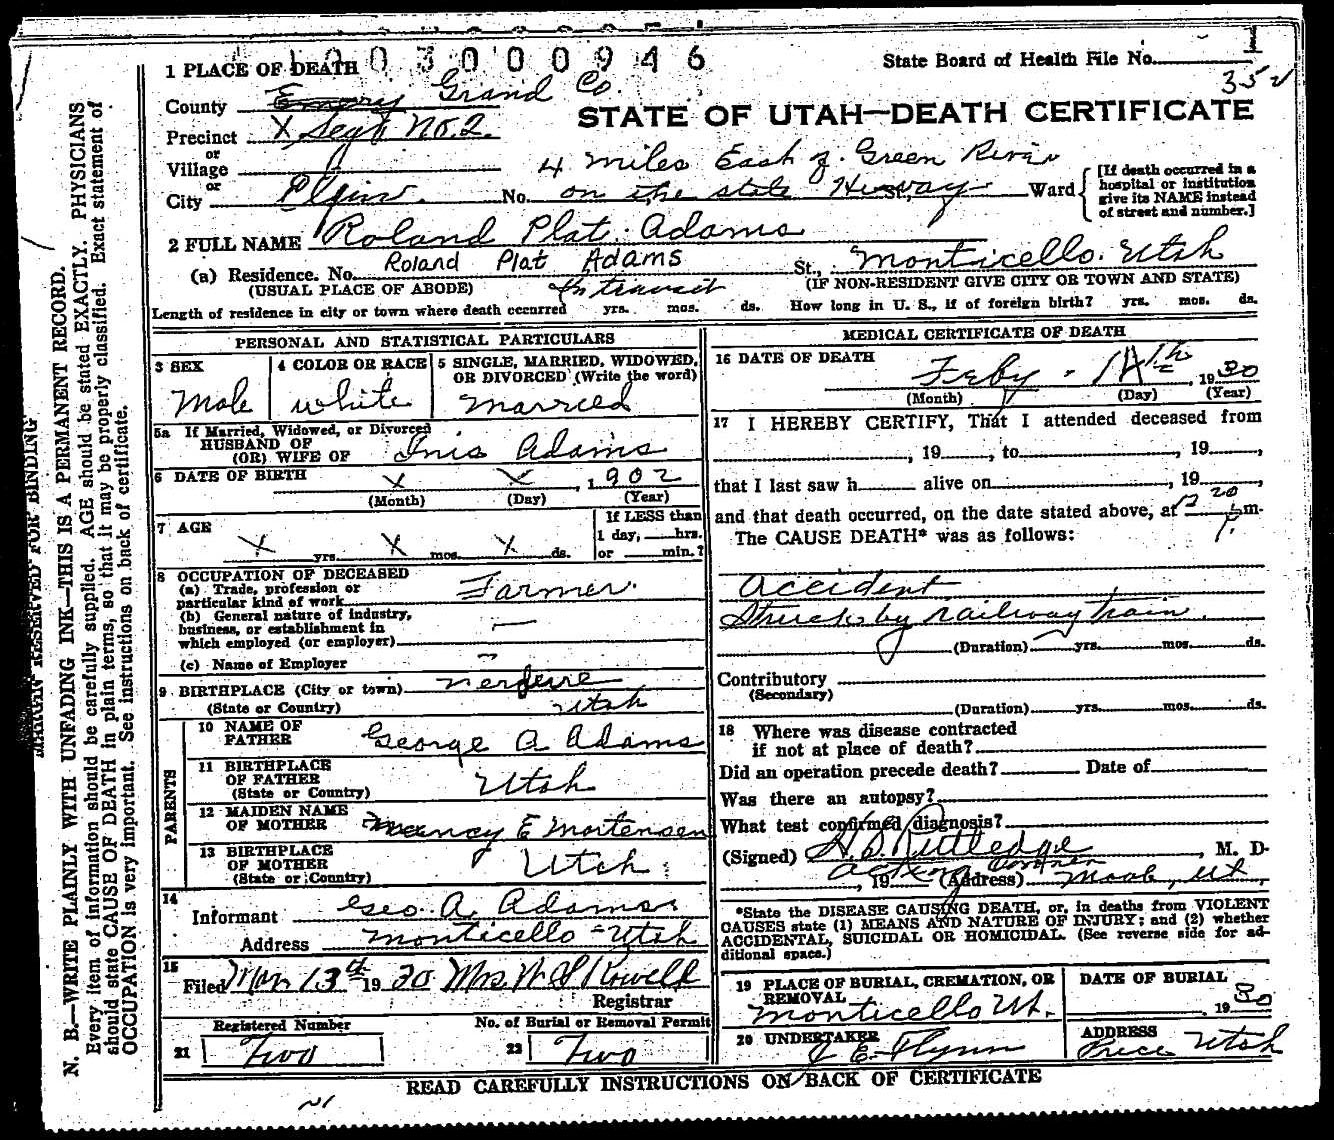 1003000946
State Board of Health File No. 1
352
1 PLACE OF DEATH
County Emery Grand Co.
STATE OF UTAH—DEATH CERTIFICATE
Precinct X Segt No. 2.
or
Village
4 miles East of Green River
or
City Elgin. No. on the state Hiway St., Ward
[If death occurred in a
hospital or institution
give its NAME instead
of street and number.]
2 FULL NAME Roland Plat Adams
(a) Residence. No. Roland Plat Adams St., Monticello. Utah
(USUAL PLACE OF ABODE) (IF NON-RESIDENT GIVE CITY OR TOWN AND STATE)
In transit
Length of residence in city or town where death occurred yrs. mos. ds. How long in U. S., if of foreign birth? yrs. mos. ds.
PERSONAL AND STATISTICAL PARTICULARS
3 SEX
Male
4 COLOR OR RACE
white
5 SINGLE, MARRIED, WIDOWED,
OR DIVORCED (Write the word)
Married
5a If Married, Widowed, or Divorced
HUSBAND OF
(OR) WIFE OF Inis Adams
6 DATE OF BIRTH X X, 1902
(Month) (Day) (Year)
7 AGE
X yrs. X mos. X ds.
If LESS than
1 day, hrs.
or min.?
8 OCCUPATION OF DECEASED
(a) Trade, profession or
particular kind of work Farmer.
(b) General nature of industry,
business, or establishment in
which employed (or employer) —
(c) Name of Employer –
9 BIRTHPLACE (City or town)
(State or Country) Utah
PARENTS
10 NAME OF
FATHER George A Adams
11 BIRTHPLACE
OF FATHER
(State or Country) Utah
12 MAIDEN NAME
OF MOTHER Nancy E Mortensen
13 BIRTHPLACE
OF MOTHER
(State or Country) Utah
14
Informant Geo. A. Adams
Address Monticello - Utah
15
Filed Mar 13th 1930 Mrs W S Rowell
Registrar
Registered Number
21 Two
No. of Burial or Removal Permit
22 Two
MEDICAL CERTIFICATE OF DEATH
16 DATE OF DEATH
Feby. 14th, 1930
(Month) (Day) (Year)
17 I HEREBY CERTIFY, That I attended deceased from
, 19, to , 19,
that I last saw h alive on , 19,
and that death occurred, on the date stated above, at 12 20 P. m.
The CAUSE DEATH* was as follows:
Accident
Struck by railway train
(Duration) yrs. mos. ds.
Contributory
(Secondary)
(Duration) yrs. mos. ds.
18 Where was disease contracted
if not at place of death?
Did an operation precede death? Date of
Was there an autopsy?
What test confirmed diagnosis?
(Signed) H. D. Rutledge, M. D.
Acting Coroner
, 19 (Address) Moab, Ut,
*State the DISEASE CAUSING DEATH, or, in deaths from VIOLENT
CAUSES state (1) MEANS AND NATURE OF INJURY; and (2) whether
ACCIDENTAL, SUICIDAL OR HOMICIDAL. (See reverse side for ad-
ditional space.)
19 PLACE OF BURIAL, CREMATION, OR
REMOVAL
Monticello Ut.
DATE OF BURIAL
, 1930
20 UNDERTAKER
J E. Flynn
ADDRESS
Price Utah
READ CAREFULLY INSTRUCTIONS ON BACK OF CERTIFICATE
MARGIN RESERVED FOR BINDING
N. B.—WRITE PLAINLY WITH UNFADING INK—THIS IS A PERMANENT RECORD.
Every item of information should be carefully supplied. AGE should be stated EXACTLY. PHYSICIANS
should state CAUSE OF DEATH in plain terms, so that it may be properly classified. Exact statement of
OCCUPATION is very important. See instructions on back of certificate.